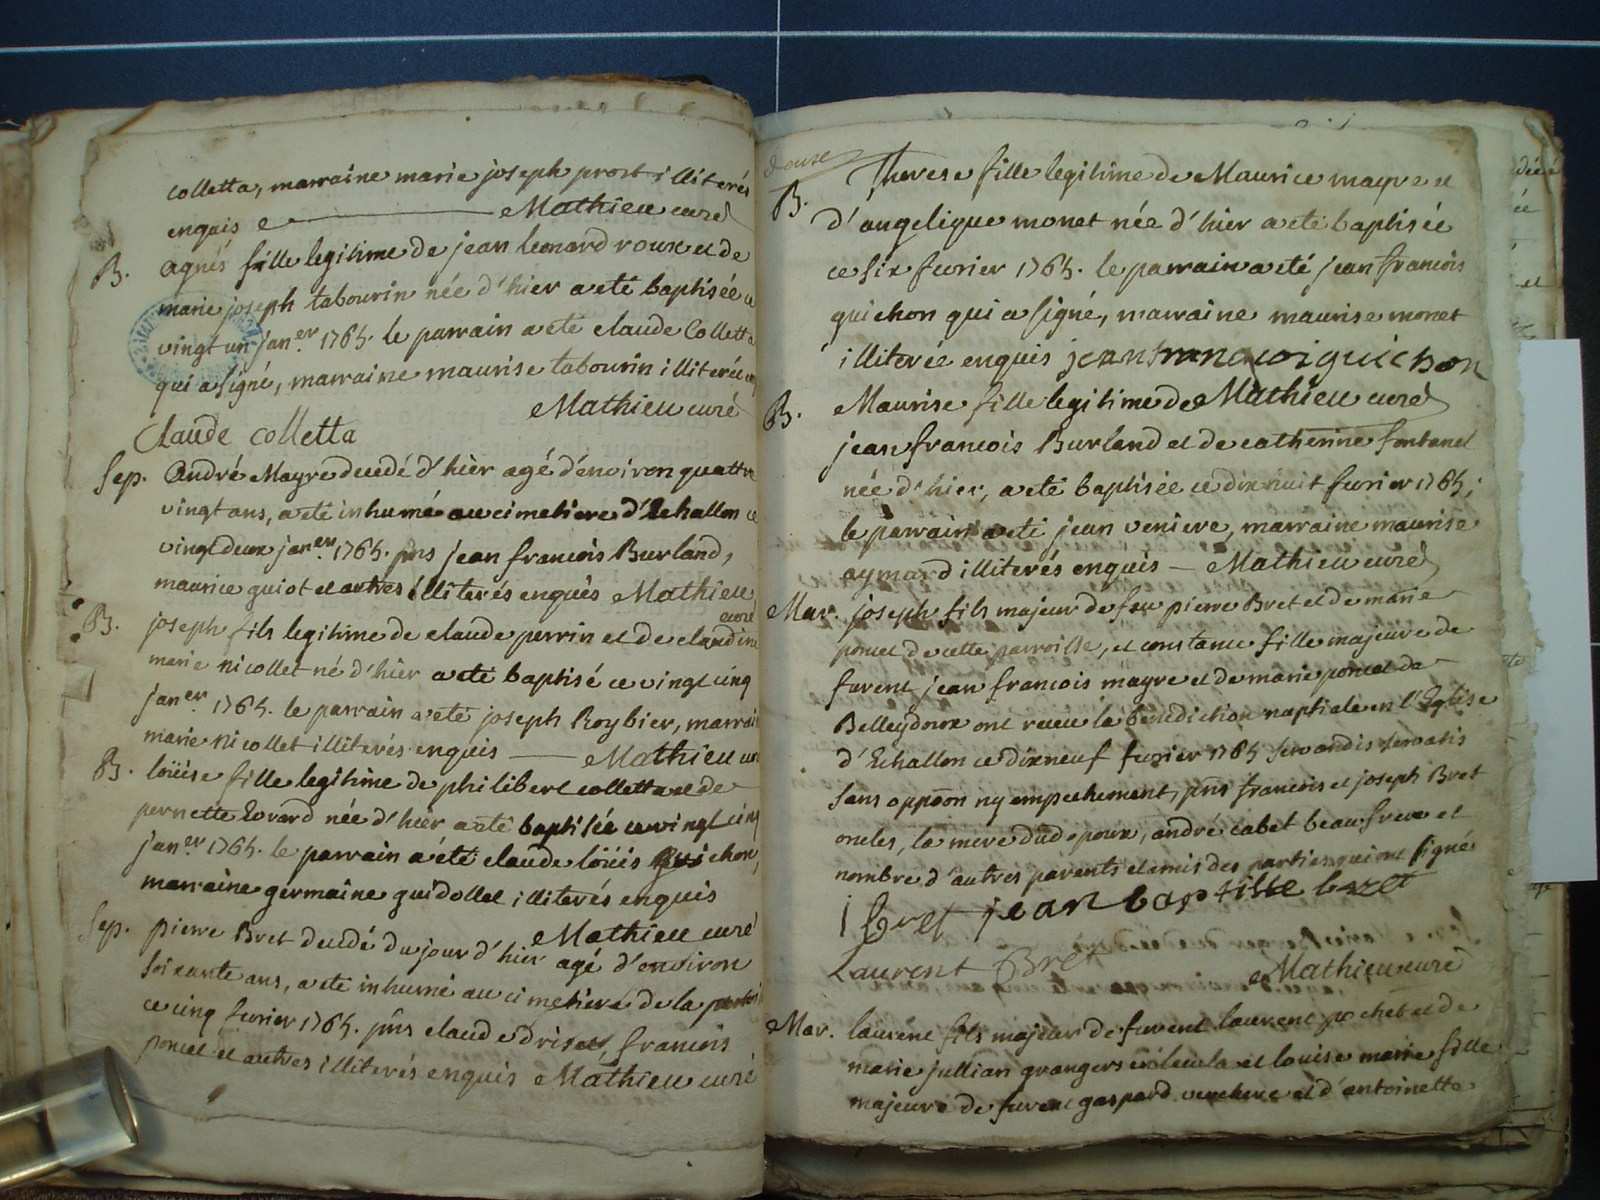 colletta, marraine marie joseph prost illiterés
enquis Mathieu curé
B. agnés fille legitime de jean leonard roux et de
marie joseph tabourin née d'hier a eté baptisée ce
vingt un jan.er 1765. le parrain a eté claude Colletta
qui a signé, marraine maurise tabourin illiterée
Mathieu curé
Claude Colletta
Sep. André Mayre decedé d'hier agé d'environ quattre
vingt ans, a eté inhumé au cimetiere d'Echallon ce
vingt deux jan.er 1765. pns jean francois Burland,
maurice guiot et autres illiterés enquis Mathieu
curé
B. joseph fils legitime de claude perrin et de claudine
marie nicollet né d'hier a eté baptisé ce vingt cinq
jan.er 1765. le parrain a eté joseph Roybier, marrai
marie nicollet illiterés enquis — Mathieu cur
B. loüise fille legitime de philibert colletta et de
pernette Evrard née d'hier a eté baptisée ce vingt cinq
jan.er 1765. le parrain a été claude loüis Guichon,
marraine germaine guidollet illiterés enquis
Mathieu curé
Sep. pierre Bret decedé du jour d'hier agé d'environ
soixante ans, a eté inhumé au cimetiere de la
ce cinq fevrier 1765. pns claude françois
poncet et autres illiterés enquis Mathieu curé
douse
B. Therese fille legitime de Maurice mayre et
d'angelique monet née d'hier a eté baptisée
ce six fevrier 1765. le parrain a eté jean francois
guichon qui a signé, marraine maurise monet
illiterée enquis jean francoi guichon
B. Maurise fille legitime de Mathieu curé
jean francois Burland et de catherine fontanel
née d'hier, a eté baptisée ce dix huit fevrier 1765;
le parrain a eté jean veniere, marraine maurise
aymard illiterés enquis — Mathieu curé
Mar. joseph fils majeur de feu pierre Bret et de marie
poncet de cette parroisse, et constance fille majeure de
furent jean francois mayre et de marie poncet de
Belleydoux ont receu la benediction nuptiale en l'Eglise
d'Echallon ce dixneuf fevrier 1765 servandis servatis
sans oppoon ny empechement, pns francois et joseph Bret
oncles, la mere dud epoux, andré cabet beaufrere et
nombre d'autres parents et amis des parties qui ont signé
j bret jean baptiste bret
Laurent Bret
Mathieu curé
Mar. laurent fils majeur de furent laurent pochet et de
marie jullian grangers et louise marie fille
majeure de furent gaspard et d'antoinette